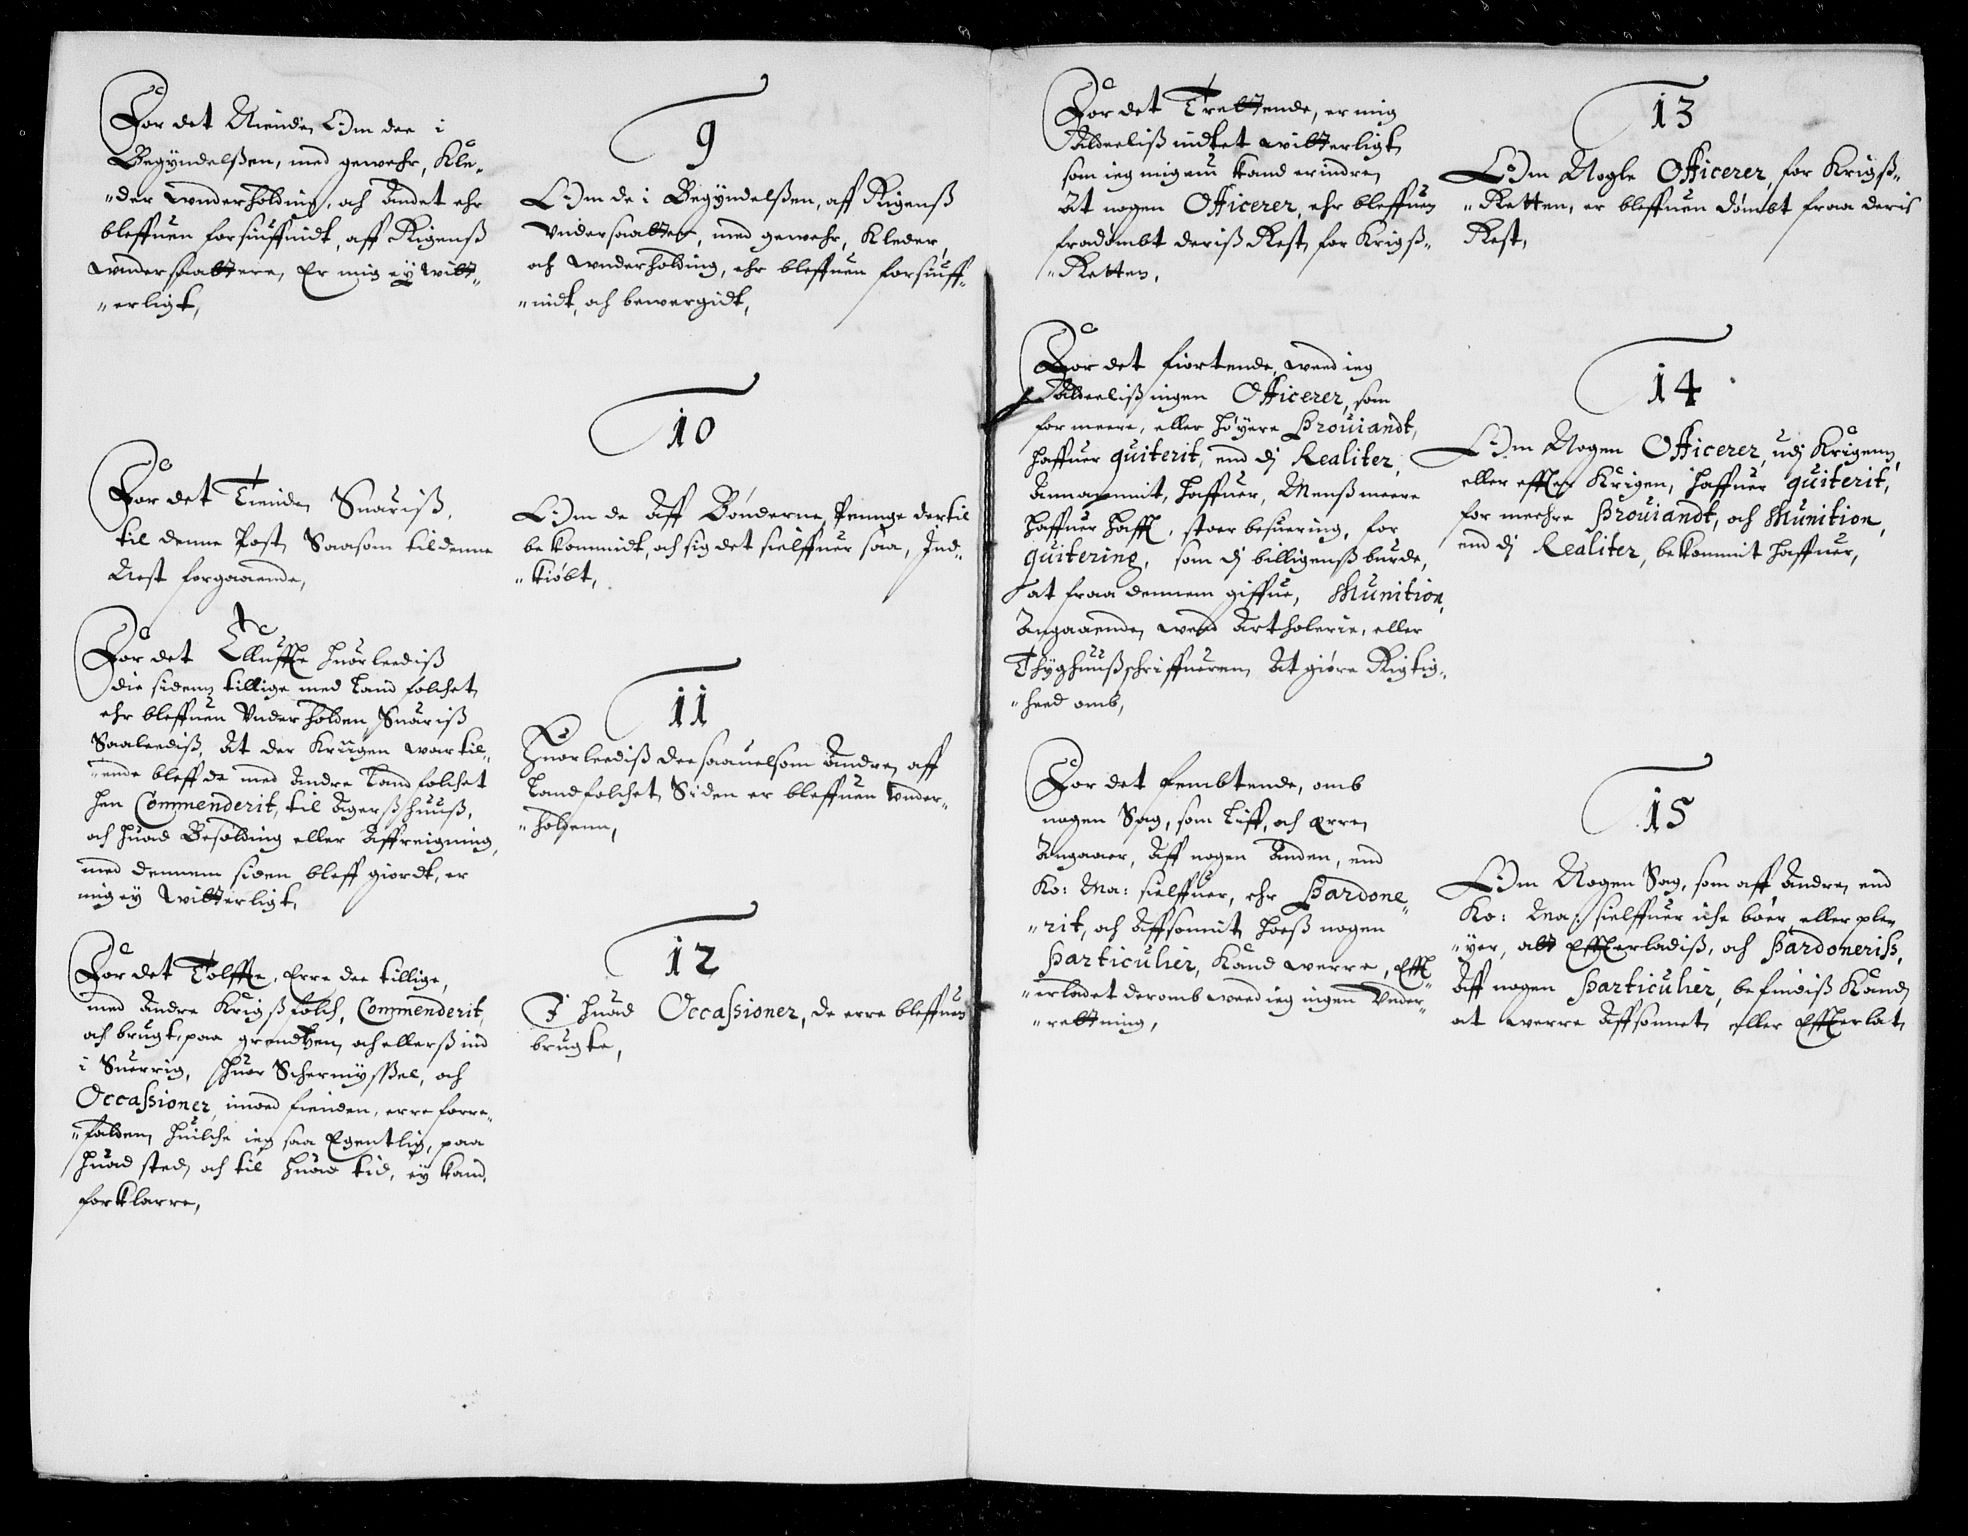 For det Niende, Om dee i
Begyndelßen, med gewehr, Kle„
„der Wnderholding, och Andet ehr
bleffuen forsiuffnidt, aff Rigenß
Wndersaattere, Er mig eÿ Witt„
„erligt,
9
Om de i Begyndelßen, aff Rigenß
Vndersaatter, med gewehr, Kleder,
och Wnderholding, ehr bleffuen forsiuff„
„nidt, och bewergidt,
For det Tiende, Suariß,
til denne Post, Saasom til denne
Nest forgaaende,
10
Om de Aff Bønderne, Penge dertil
bekommidt, och sig det sielffuer saa, Ind„
„kiøbt,
For det Elluffte huorleediß
die sidenn tillige med Land folchet
ehr bleffuen Vnderholden Suariß
Saaleediß, At der Kriigen war til„
„ende bleff de med Andre Landfolchet
hen Commenderit, til Agerßhuuß,
och huad Besolding eller Affreigning,
med dennem siden bleff giordt, er
mig eÿ Witterligt,
11
Huorleediß dee saauelsom Andre, aff
Landfolchet, Siden er bleffuen Vnder„
„holdenn,
For det Tolffte, Erre dee tillige,
med Andre Krigßfolch, Commenderit,
och brugt, paa grendtzen, och ellerß ind
i Suerrig, Huor Schermÿssel, och
Occasioner, imod fienden, erre forre„
„falden, huilche ieg saa Egentlig, paa
huad sted, och til huad tid, eÿ kand
forklarre,
12
I huad Occasioner, de erre bleffuen
brugte,
For det Trettende, er mig
Aldeeliß indtet witterligt,
som ieg mig nu kand erindre,
At nogen Officerer, ehr bleffuen
fradømbt deriß Rest, for Krigß„
„Retten,
13
Om Nogle Officerer, for Krigß„
„Retten, er bleffuen dømbt fraa deris
Rest,
For det fiortende, weed ieg
Aldeeliß ingen Officerer, som
for meere, eller høyere Prouiandt,
haffuer quiterit, end dj Realiter,
Annammit, haffuer, Menß meere
haffuer hafft, stoer besuering, for
quitering, som dj billigenß burde,
at fraa dennem giffue, Munition,
Angaaende, weed Artholerie, eller
Thÿghuußschriffueren, At giøre Rigtig„
„heed omb,
14
Om Nogen Officerer, udj Krigenn,
eller effter Krigen, haffuer quiterit,
for meehre Prouiandt, och Munition,
end dj Realiter, bekommit haffuer,
For det fembtende, omb
nogen Sag, som Liff, och Ærre,
Angaaer, Aff nogen Anden, end
Ko: Ma: sielffuer, ehr Pardone„
„rit, och Affsonnit, hoeß nogen
Particulier, Kand werre, Efft„
„erladet deromb weed ieg ingen Vnder„
„rettning,
15
Om Nogen Sag, som aff Andre, end
Ko: Ma: sielffuer iche bøer, eller ple„
„ÿer, att Effterladiß, och Pardoneriß,
Aff nogen Particulier, befindiß Kand,
at werre Affsonnet, eller Effterlat,